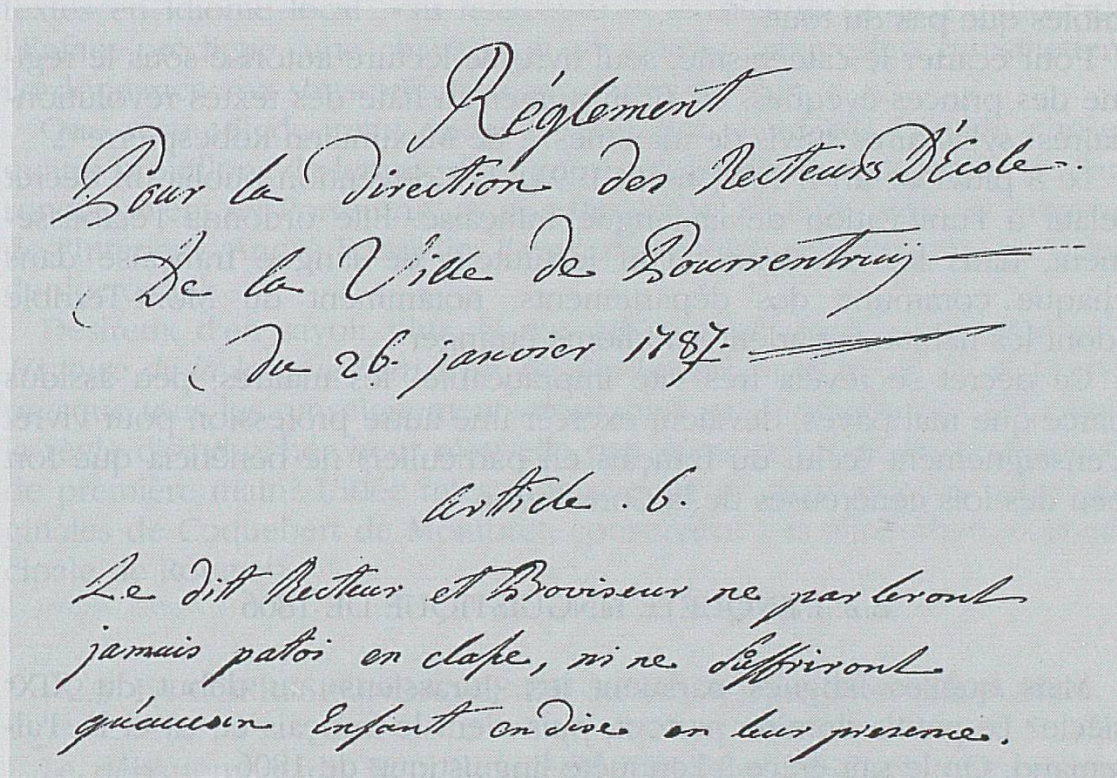 Réglement
Pour la Direction des Recteurs D'école
De la Ville de Pourrentruy
du 26. janvier 1787.
article . 6.
Le ditt Recteur et Proviseur ne parleront
jamais patoi en classe, ni ne Souffriront
qu'aucun Enfant en dise en leur presence.